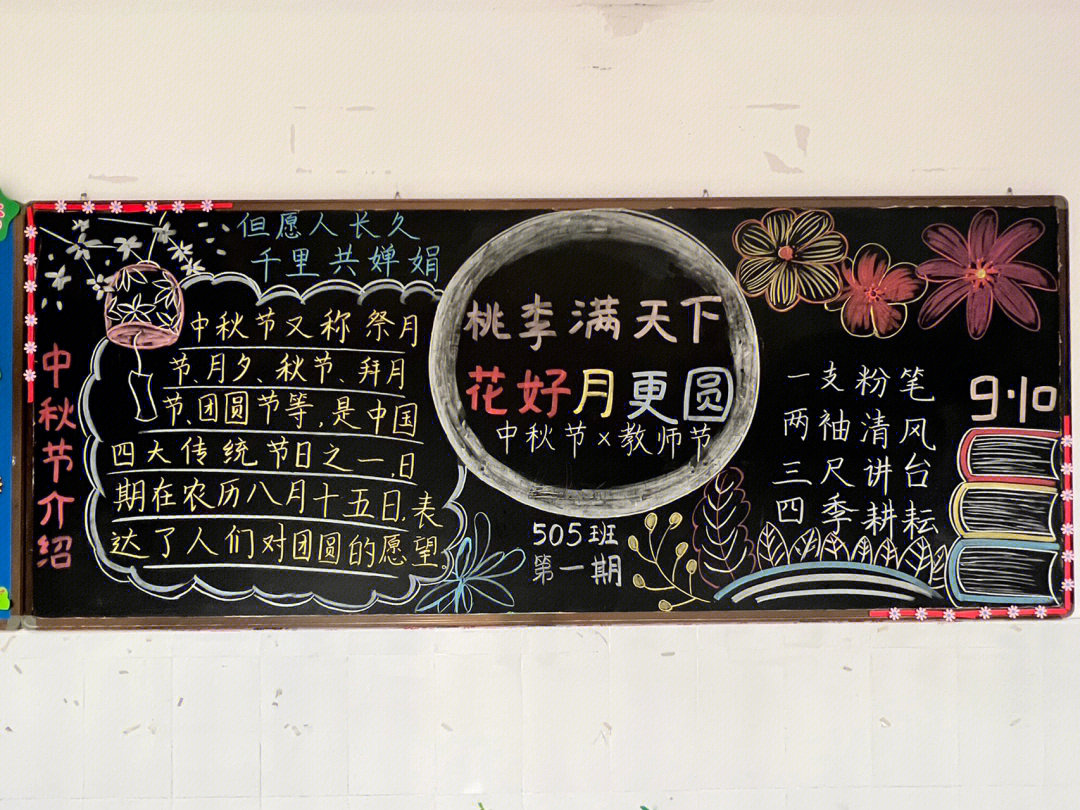 但愿人长久
千里共婵娟
中秋节介绍
中秋节又称祭月
节、月夕、秋节、拜月
节、团圆节等,是中国
四大传统节日之一,日
期在农历八月十五日,表
达了人们对团圆的愿望。
桃李满天下
花好月更圆
中秋节×教师节
505班
第一期
一支粉笔
两袖清风
三尺讲台
四季耕耘
9·10